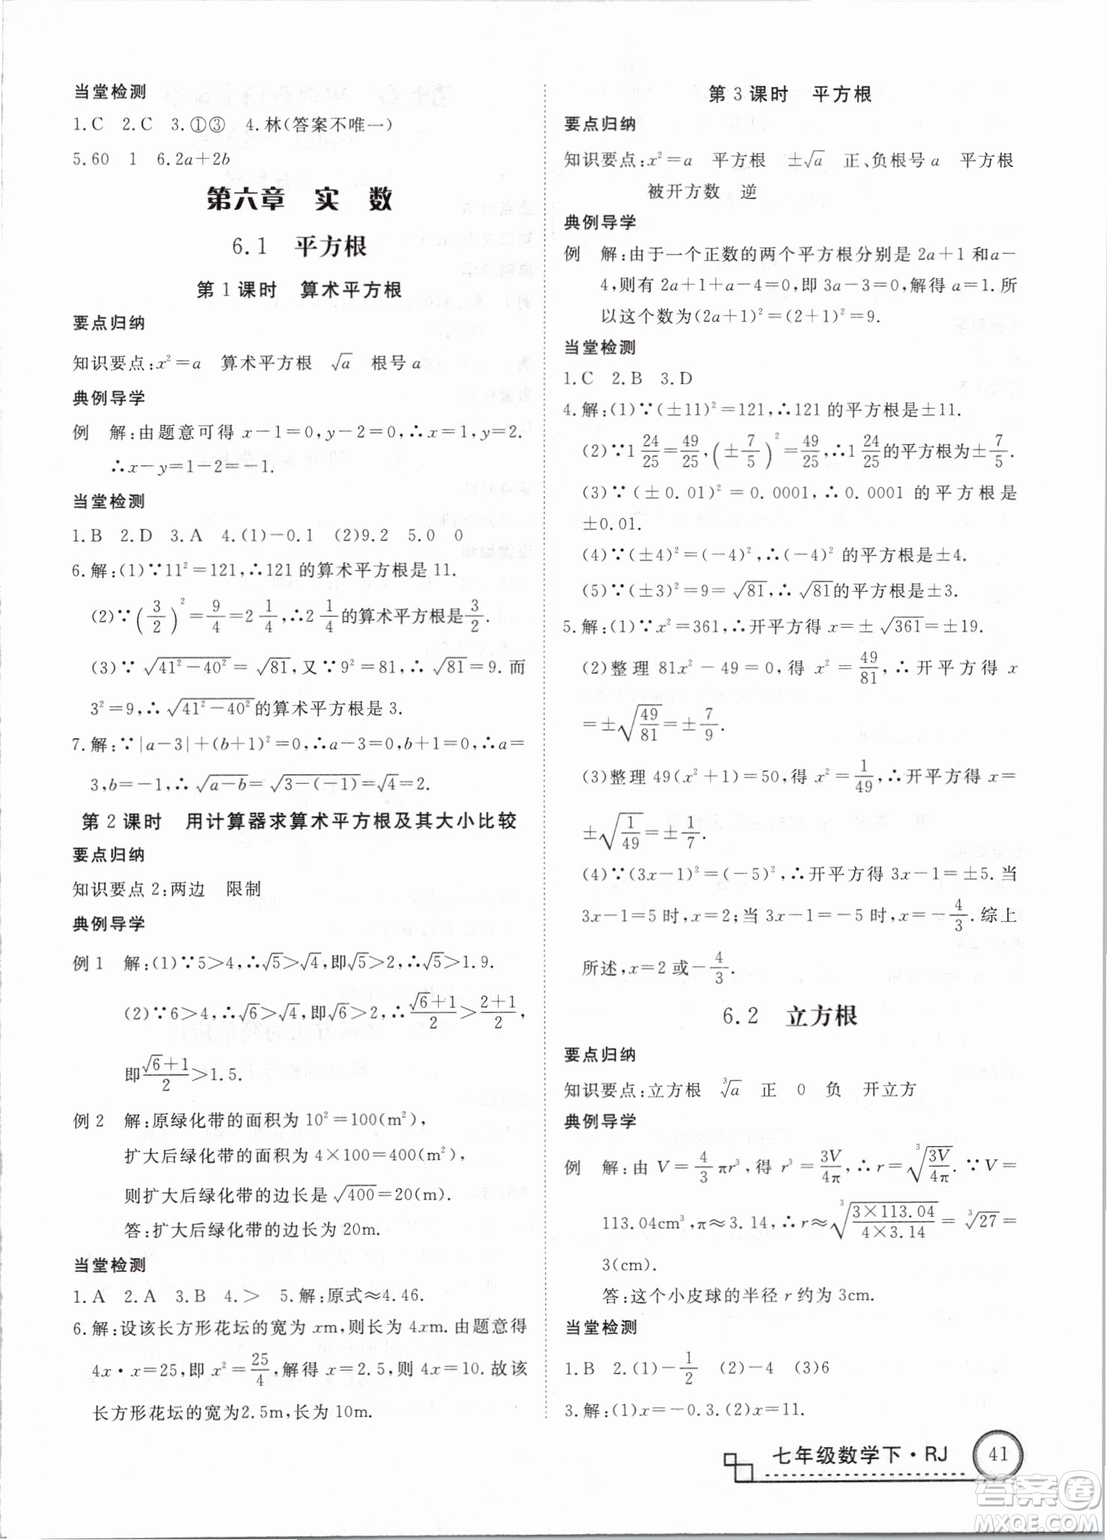 当堂检测
1.C 2.C 3.①③ 4.林(答案不唯一)
5.60 1 6.2a+2b
第六章 实 数
6.1 平方根
第1课时 算术平方根
要点归纳
知识要点:x²=a 算术平方根 √a 根号a
典例导学
例 解:由题意可得 x-1=0,y-2=0.∴x=1,y=2.
∴x-y=1-2=-1.
当堂检测
1.B 2.D 3.A 4.(1)-0.1 (2)9.2 5.0 0
6.解:(1)∵11²=121,∴121的算术平方根是11.
(2)∵(3/2)²=9/4=2 1/4,∴2 1/4的算术平方根是3/2.
(3)∵√(41²-40²)=√81,又∵9²=81,∴√81=9.而
3²=9,∴√(41²-40²)的算术平方根是3.
7.解:∵|a-3|+(b+1)²=0,∴a-3=0,b+1=0,∴a=
3,b=-1,∴√(a-b)=√(3-(-1))=√4=2.
第2课时 用计算器求算术平方根及其大小比较
要点归纳
知识要点2:两边 限制
典例导学
例1 解:(1)∵5>4,∴√5>√4,即√5>2,∴√5>1.9.
(2)∵6>4,∴√6>√4,即√6>2,∴(√6+1)/2>(2+1)/2,
即(√6+1)/2>1.5.
例2 解:原绿化带的面积为10²=100(m²),
扩大后绿化带的面积为4×100=400(m²),
则扩大后绿化带的边长为√400=20(m).
答:扩大后绿化带的边长为20m.
当堂检测
1.A 2.A 3.B 4.> 5.解:原式≈4.46.
6.解:设该长方形花坛的宽为xm,则长为4xm.由题意得
4x·x=25,即x²=25/4,解得x=2.5,则4x=10.故该
长方形花坛的宽为2.5m,长为10m.
第3课时 平方根
要点归纳
知识要点:x²=a 平方根 ±√a 正、负根号a 平方根
被开方数 逆
典例导学
例 解:由于一个正数的两个平方根分别是2a+1和a-
4,则有2a+1+a-4=0,即3a-3=0,解得a=1.所
以这个数为(2a+1)²=(2+1)²=9.
当堂检测
1.C 2.B 3.D
4.解:(1)∵(±11)²=121,∴121的平方根是±11.
(2)∵1 24/25=49/25,(±7/5)²=49/25,∴1 24/25的平方根是±7/5.
(3)∵(±0.01)²=0.0001,∴0.0001的平方根是
±0.01.
(4)∵(±4)²=(-4)²,∴(-4)²的平方根是±4.
(5)∵(±3)²=9=√81,∴√81的平方根是±3.
5.解:(1)∵x²=361,∴开平方得x=±√361=±19.
(2)整理81x²-49=0,得x²=49/81,∴开平方得x
=±√(49/81)=±7/9.
(3)整理49(x²+1)=50,得x²=1/49,∴开平方得x=
±√(1/49)=±1/7.
(4)∵(3x-1)²=(-5)²,∴开平方得3x-1=±5.当
3x-1=5时,x=2;当3x-1=-5时,x=-4/3.综上
所述,x=2或-4/3.
6.2 立方根
要点归纳
知识要点:立方根 ³√a 正 0 负 开立方
典例导学
例 解:由V=4/3πr³,得r³=3V/4π,∴r=³√(3V/4π).∵V=
113.04cm³,π≈3.14,∴r≈³√((3×113.04)/(4×3.14))=³√27=
3(cm).
答:这个小皮球的半径r约为3cm.
当堂检测
1.B 2.(1)-1/2 (2)-4 (3)6
3.解:(1)x=-0.3.(2)x=11.
七年级数学下·RJ 41
答案圈
MXQE.COM